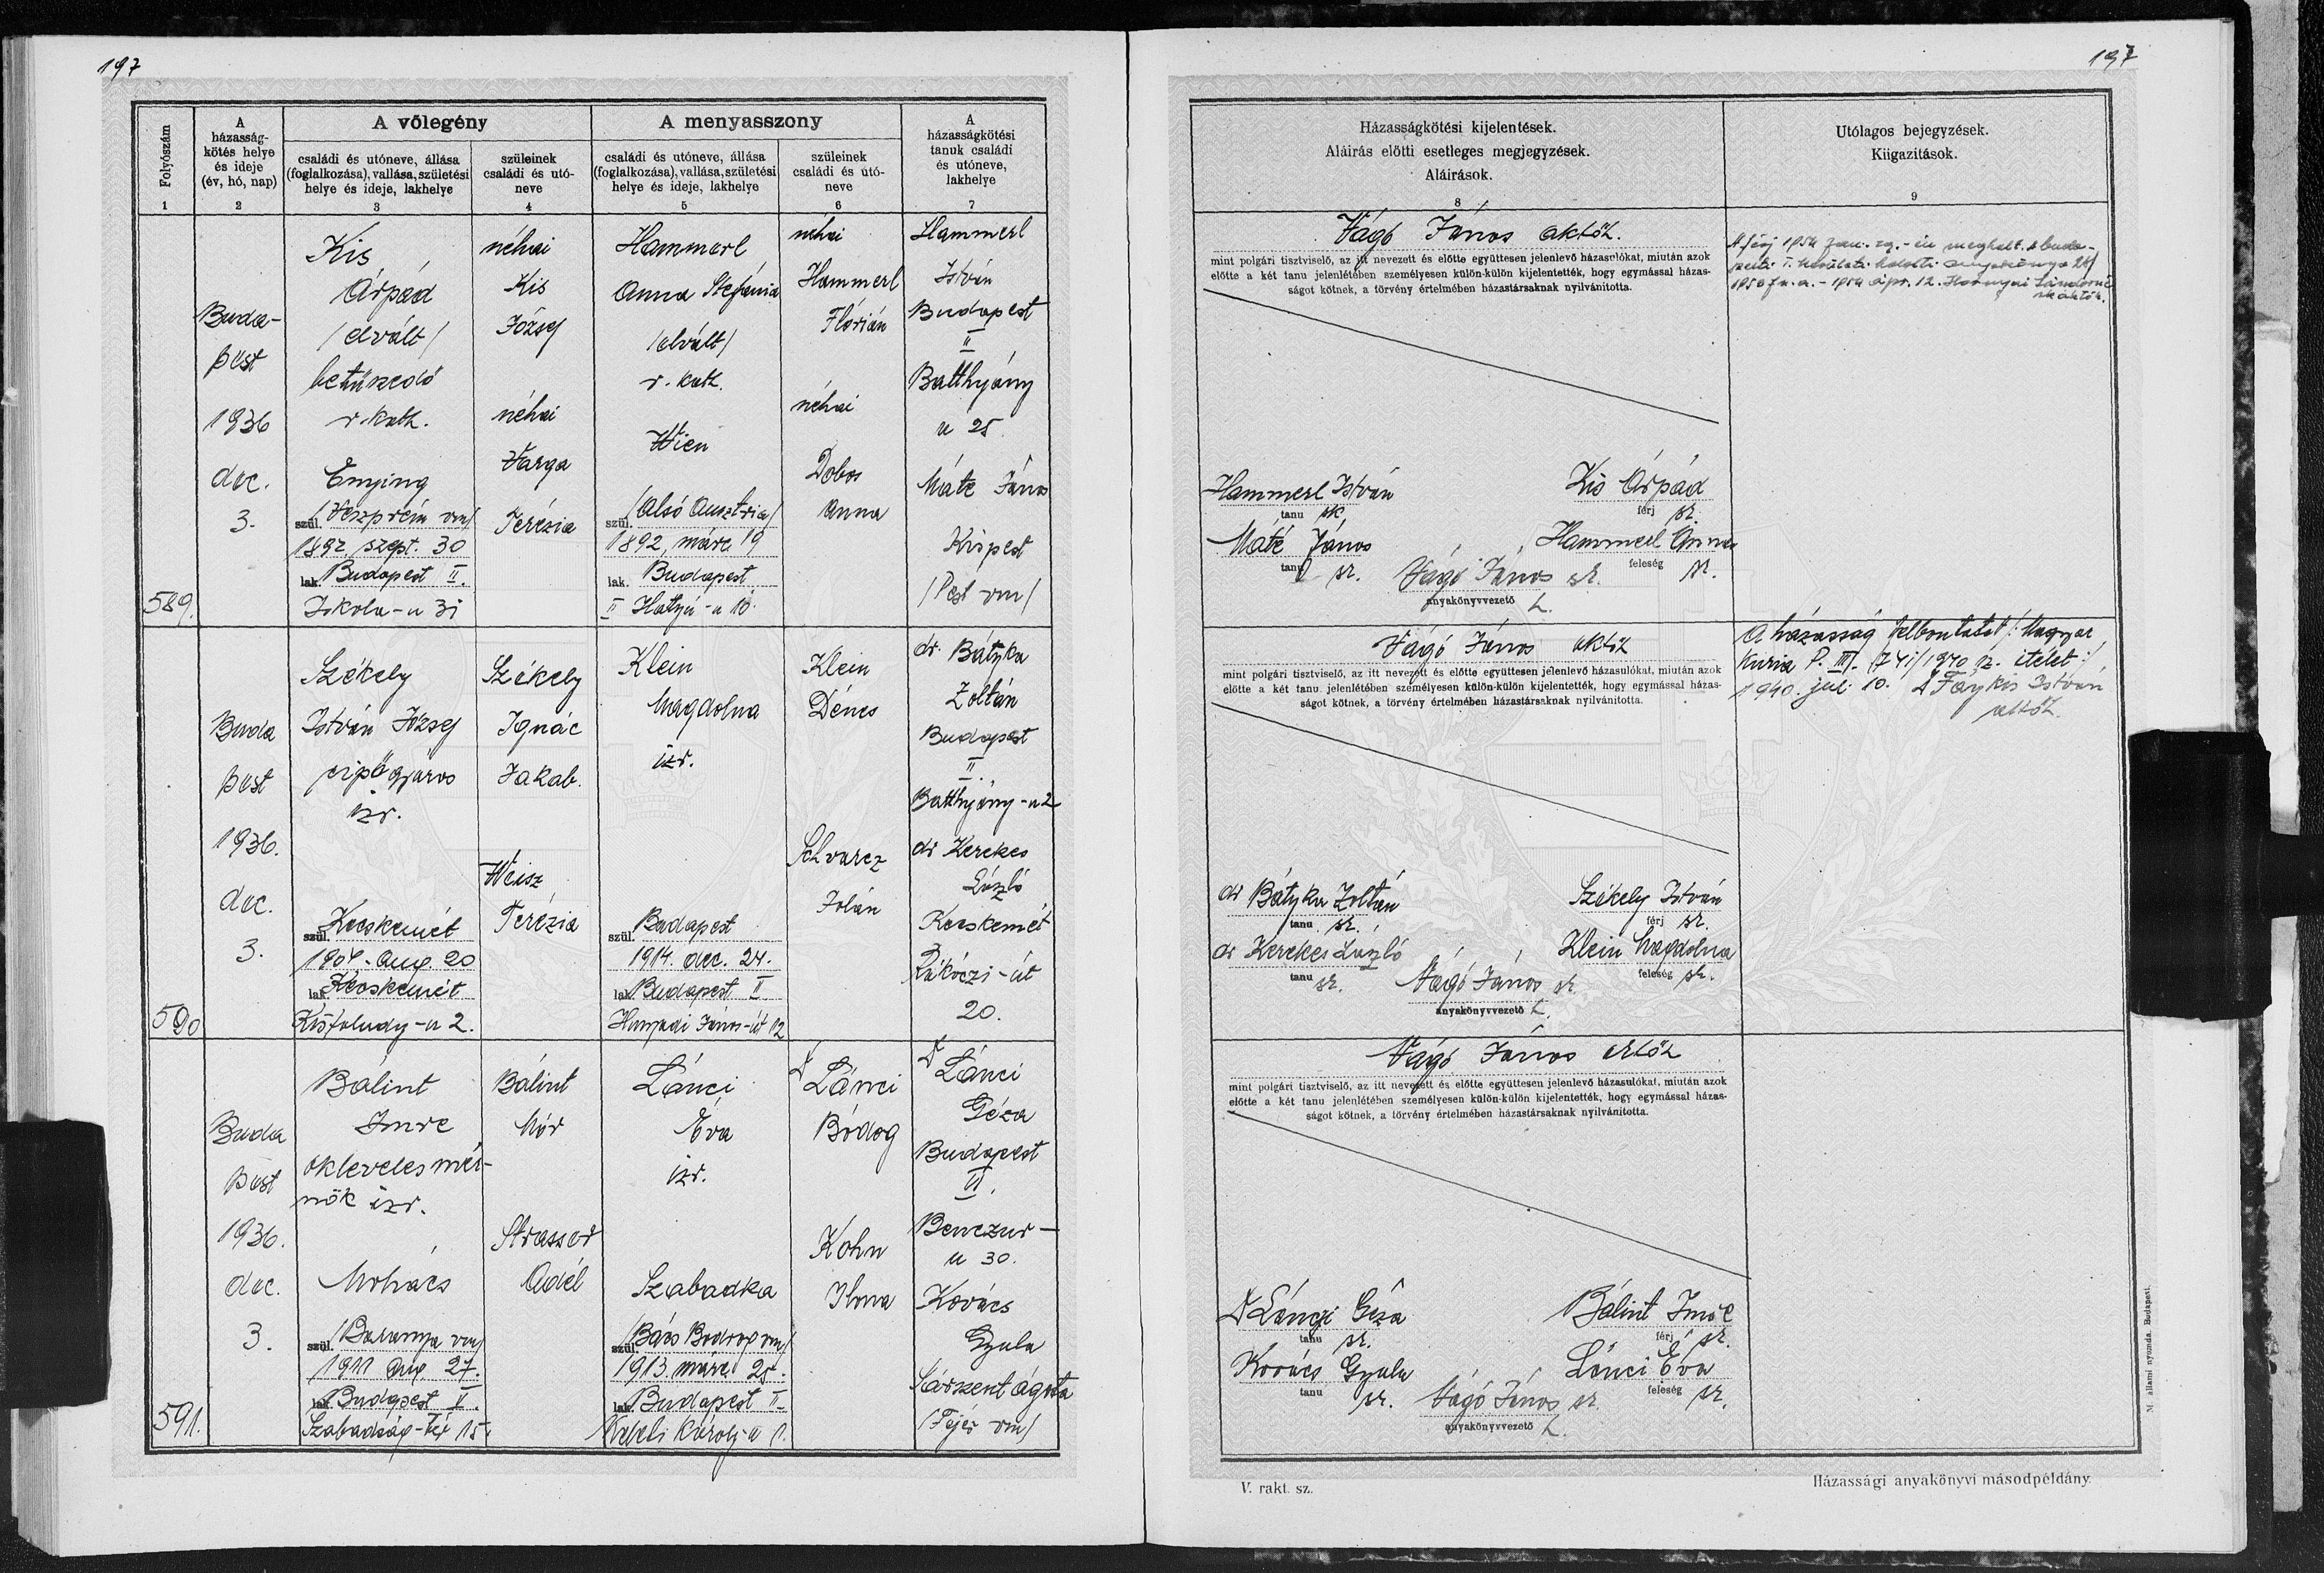 197
197
Folyószám
A
házasság-
kötés helye
és ideje
(év, hó, nap)
A vőlegény
családi és utóneve, állása
(foglalkozása), vallása, születési
helye és ideje, lakhelye
szüleinek
családi és utó-
neve
A menyasszony
családi és utóneve, állása
(foglalkozása), vallása, születési
helye és ideje, lakhelye
szüleinek
családi és utó-
neve
A
házasságkötési
tanuk családi
és utóneve,
lakhelye
1
2
3
4
5
6
7
589.
Buda-
pest
1936
dec.
3.
Kis
Árpád
/elvált/
betűszedő
r. kath.
Enying
szül. /Veszprém vm/
1892. szept. 30
lak. Budapest II.
Iskola-u 31
néhai
Kis
József
néhai
Varga
Terézia
Hammerl
Anna Stefánia
/elvált/
r. kath.
Wien
szül. /Alsó Ausztria/
1892, márc 19
lak. Budapest
II Hattyú-u 10.
néhai
Hammerl
Flórián
néhai
Dobos
Anna
Hammerl
István
Budapest
II
Batthyány
u 25.
Máté János
Kispest
/Pest vm/
590
Buda
pest
1936.
dec.
3.
Székely
István József
cipőgyáros
izr.
szül. Kecskemét
1904. aug. 20
lak. Kecskemét
Kisfaludy-u 2.
Székely
Ignác
Jakab.
Weisz
Terézia
Klein
Magdolna
izr.
szül. Budapest
1914. dec. 24.
lak. Budapest II
Hunyadi János-út 12
Klein
Dénes
Schvarcz
Jolán
dr. Bátyka
Zoltán
Budapest
II.
Batthyány-u 2
dr Kerekes
László
Kecskemét
Rákóczi-út
20.
591.
Buda
pest
1936.
dec.
3.
Bálint
Imre
okleveles mér-
nök izr.
Mohács
szül. /Baranya vm/
1911 aug. 27.
lak. Budapest V.
Szabadság-tér 15.
Bálint
Mór
Strasser
Adél
Lánci
Éva
izr.
Szabadka
szül. /Bács Bodrog vm/
1913. márc. 25.
lak. Budapest II
Keleti Károly-u
Dr Lánci
Bódog
Kohn
Ilona
Dr Lánci
Géza
Budapest
VI.
Benczur-
u 30.
Kovács
Gyula
Sárszentágota
/Fejér vm/
Házasságkötési kijelentések.
Aláirás előtti esetleges megjegyzések.
Aláirások.
8
Utólagos bejegyzések.
Kiigazitások.
9
Vágó János aktőh.
mint polgári tisztviselő, az itt nevezett és előtte együttesen jelenlevő házasulókat, miután azok
előtte a két tanu jelenlétében személyesen külön-külön kijelentették, hogy egymással házas-
ságot kötnek, a törvény értelmében házastársaknak nyilvánitotta.
Hammerl István
tanu sk
Kis Árpád
férj sk.
Máté János
tanu sk.
Hammerl Anna
feleség sk.
Vágó János sk.
anyakönyvvezető h.
A férj 1954 jan. 29.-én meghalt. A buda-
pesti I. kerületi halotti anyakönyv 24/
1954 f. a. - 1954 ápr. 12.
Vágó János aktőh
mint polgári tisztviselő, az itt nevezett és előtte együttesen jelenlevő házasulókat, miután azok
előtte a két tanu jelenlétében személyesen külön-külön kijelentették, hogy egymással házas-
ságot kötnek, a törvény értelmében házastársaknak nyilvánitotta.
dr Bátyka Zoltán
tanu sk.
Székely István
férj sk.
dr Kerekes László
tanu sk.
Klein Magdolna
feleség sk.
Vágó János sk.
anyakönyvvezető h.
A házasság felbontatott /: Magyar
Kúria P. III. 1741/1940 sz. itélet :/,
1940. jul. 10. István
aktőh.
Vágó János aktőh
mint polgári tisztviselő, az itt nevezett és előtte együttesen jelenlevő házasulókat, miután azok
előtte a két tanu jelenlétében személyesen külön-külön kijelentették, hogy egymással házas-
ságot kötnek, a törvény értelmében házastársaknak nyilvánitotta.
Dr Lánczi Géza
tanu sk.
Bálint Imre
férj sk.
Kovács Gyula
tanu sk.
Lánci Éva
feleség sk.
Vágó János sk.
anyakönyvvezető h.
M. állami nyomda. Budapest.
V. rakt. sz.
Házassági anyakönyvi másodpéldány.